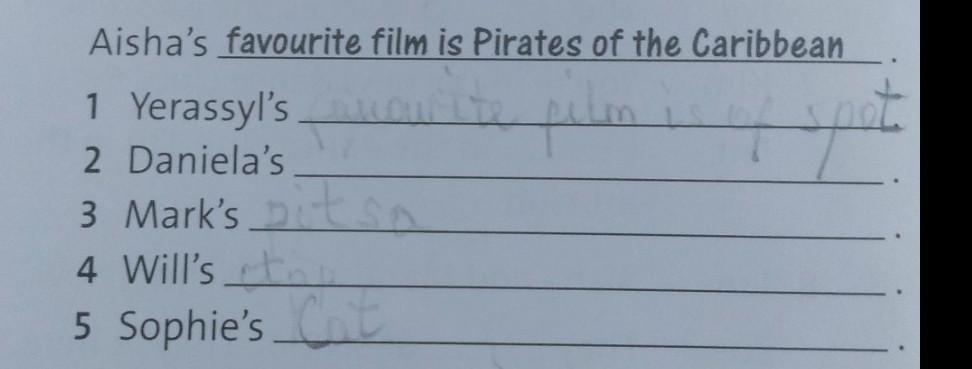 Aisha's favourite film is Pirates of the Caribbean.
1 Yerassyl's favourite film is of spot
2 Daniela's .
3 Mark's pitsa .
4 Will's .
5 Sophie's Cat .